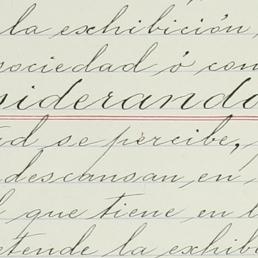 la exhibición
sociedad ó con
siderando
ad se percibe,
descansan en
que tiene en l
etende la exhib